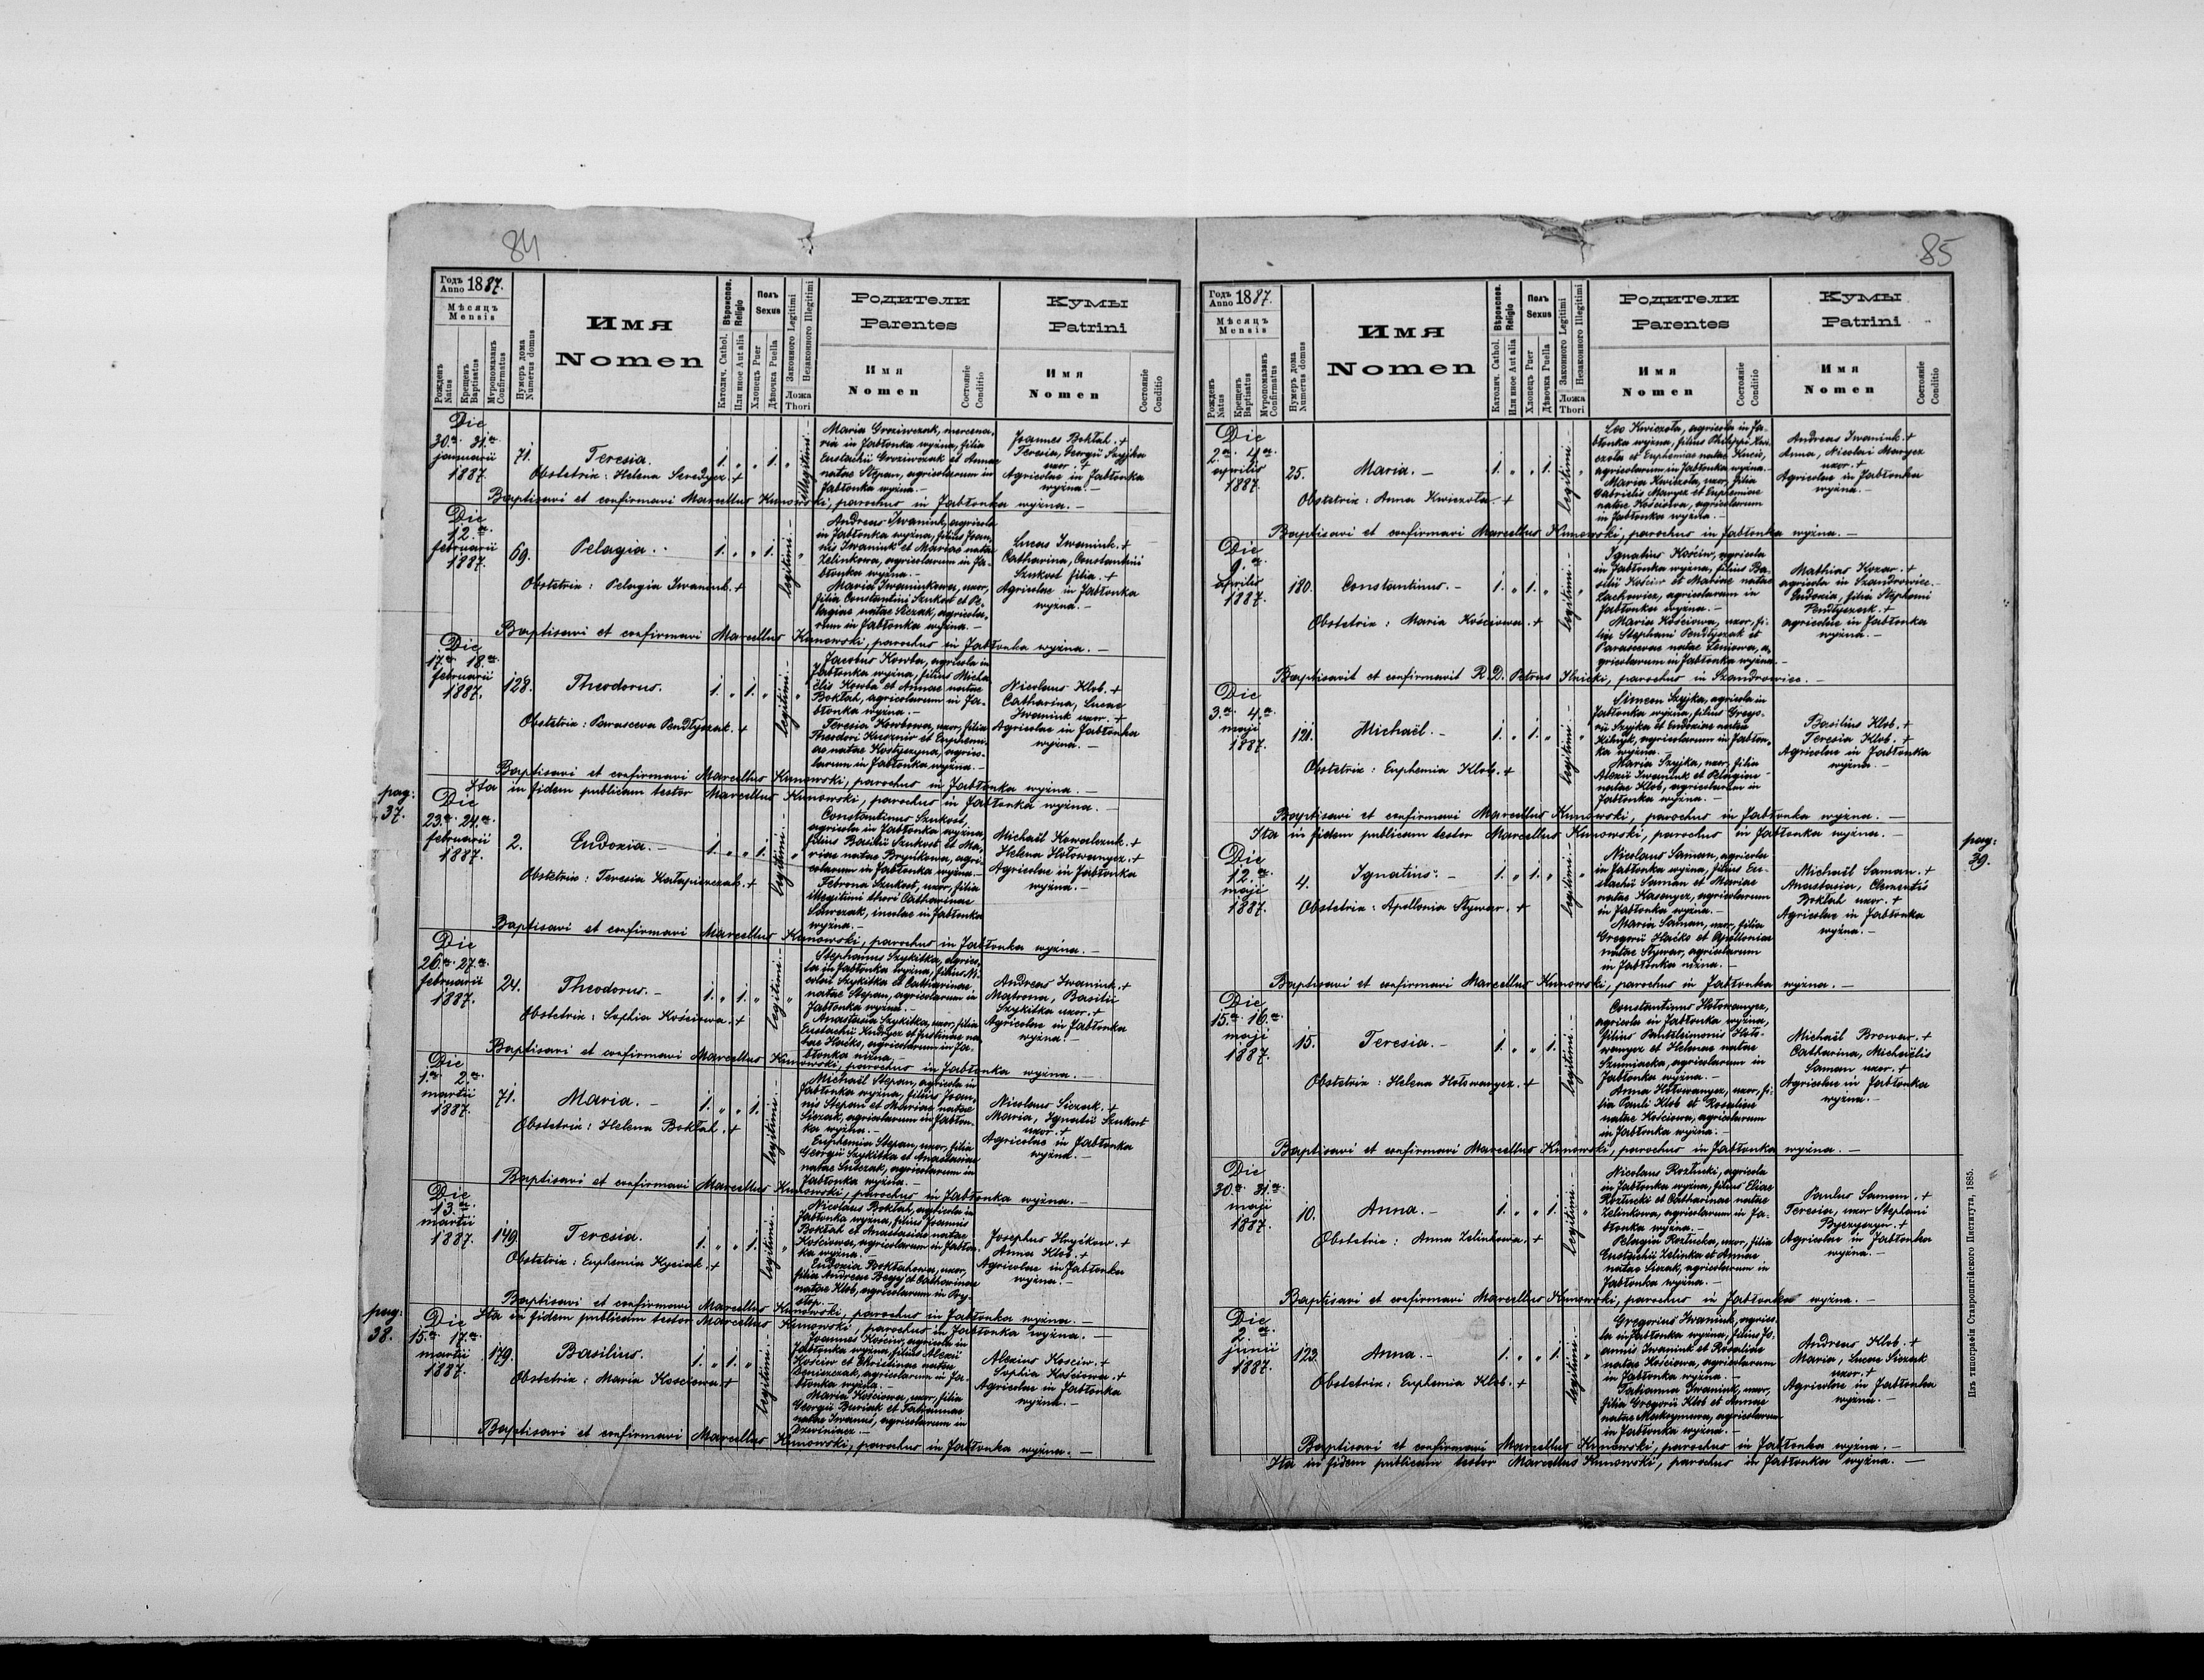 84
Годъ Anno 1887.
Мѣсяцъ
Mensis
Рожденъ Natus
Крещенъ Baptisatus
Мѵропомазанъ Confirmatus
Нумеръ дома Numerus domus
Имя
Nomen
Вѣроиспов. Religio
Католич. Cathol.
Или иное Aut alia
Полъ
Sexus
Хлопецъ Puer
Дѣвочка Puella
Законного Legitimi
Незаконного Illegitimi
Ложа
Thori
Родители
Parentes
Имя
Nomen
Состояніе
Conditio
Кумы
Patrini
Имя
Nomen
Состояніе
Conditio
Die
30.a 31.a
januarii
1887.
71.
Teresia.
Obstetrix: Helena Seredycz. +
1. „ „ 1. „
illegitimi. –
Maria Groziwczak, mercena,
ria in Jabłonka wyżna, filia
Eustachii Groziwczak et Annae
natae Stepan, agricolarum in
Jabłonka wyżna. –
Joannes Bokłah. +
Teresia, Georgii Szyjka
uxor. +
Agricolae in Jabłonka
wyżna. –
Baptisavi et confirmavi Marcellus Kunowski, parochus in Jabłonka wyżna. –
Die
12.a
februarii
1887.
69.
Pelagia. –
Obstetrix: Pelagia Iwaniuk. +
1. „ „ 1.
legitimi. –
„
Andreas Iwaniuk, agricola
in Jabłonka wyżna, filius Joan,
nis Iwaniuk et Mariae natae
Zelinkowa, agricolarum in Ja-
błonka wyżna. –
Maria Iwaniukowa, uxor,
filia Constantini Szukost et Pe,
lagiae natae Siczak, agricola,
rum in Jabłonka wyżna. –
Lucas Iwaniuk. +
Catharina, Constantini
Szukost filia. +
Agricolae in Jabłonka
wyżna. –
Baptisavi et confirmavi Marcellus Kunowski, parochus in Jabłonka wyżna. –
Die
17.a 18.a
februarii
1887.
128.
Theodorus.
Obstetrix: Parasceva Pendłyszak. +
1. „ 1. „
legitimi. –
„
Jacobus Kowba, agricola in
Jabłonka wyżna, filius Micha
ëlis Kowba et Annae natae
Bokłah, agricolarum in Ja-
błonka wyżna. –
Teresia Kowbowa, uxor, filia
Theodori Kusznir et Euphemi-
ae natae Kostyszyna, agrico-
larum in Jabłonka wyżna. –
Nicolaus Klob. +
Catharina, Lucae
Iwaniuk uxor. +
Agricolae in Jabłonka
wyżna. –
Baptisavi et confirmavi Marcellus Kunowski, parochus in Jabłonka wyżna. –
Ita in fidem publicam testor Marcellus Kunowski, parochus in Jabłonka wyżna. –
pag:
37.
Die
23.a 24.a
februarii
1887.
2.
Eudoxia. –
1. „ „ 1.
legitimi. –
„
Constantinus Szukost,
agricola in Jabłonka wyżna,
filius Basilii Szukost et Ma,
riae natae Brynkowa, agri-
colarum in Jabłonka wyżna. –
Febrona Szukost, uxor, filia
illegitimi thori Catharinae
Sawczak, incolae in Jabłonka
wyżna. –
Michaël Kowalczuk. +
Helena Hołowanycz. +
Agricolae in Jabłonka
wyżna. –
Baptisavi et confirmavi Marcellus Kunowski, parochus in Jabłonka wyżna. –
Die
26.a 27.a
februarii
1887.
24.
Theodorus. –
Obstetrix: Sophia Kościowa. +
1. „ 1. „
legitimi. –
„
Stephanus Szykitka, agrico,
la in Jabłonka wyżna, filius Ni-
colai Szykitka et Catharinae
natae Stepan, agricolarum in
Jabłonka wyżna. –
Anastasia Szykitka, uxor, filia
Eustachii Kudrycz et Justinae na
tae Haćko, agricolarum in Ja-
błonka niżna. –
Andreas Iwaniuk. +
Matrona, Basilii
Szykitka uxor. +
Agricolae in Jabłonka
wyżna. –
Baptisavi et confirmavi Marcellus Kunowski, parochus in Jabłonka wyżna. –
Die
1.a 2.a
martii
1887.
71.
Maria. –
Obstetrix: Helena Bokłah. +
1. „ „ 1.
legitimi. –
Michaël Stepan, agricola in
Jabłonka wyżna, filius Joan,
nis Stepan et Mariae natae
Siczak, agricolarum in Jabłon-
ka wyżna. –
Euphemia Stepan, uxor, filia
Georgii Szykitka et Anastasiae
natae Sulczak, agricolarum in
Jabłonka wyżna. –
Nicolaus Siczak. +
Maria, Ignatii Szukost
uxor. +
Agricolae in Jabłonka
wyżna. –
Baptisavi et confirmavi Marcellus Kunowski, parochus in Jabłonka wyżna. –
Die
13.a
martii
1887.
149.
Teresia.
Obstetrix: Euphemia Kyciak. +
1. „ „ 1.
legitimi. –
„
Nicolaus Bokłah, agricola in
Jabłonka wyżna, filius Joannis
Bokłah et Anastasiae natae
Kościowa, agricolarum in Jabłon-
ka wyżna. –
Eudoxia Bokłahowa, uxor,
filia Andreae Begej et Catharinae
natae Klob, agricolarum in Pry-
słop. –
Josephus Hryćkow. +
Anna Klob. +
Agricolae in Jabłonka
wyżna. –
Baptisavi et confirmavi Marcellus Kunowski, parochus in Jabłonka wyżna. –
Ita in fidem publicam testor Marcellus Kunowski, parochus in Jabłonka wyżna. –
pag:
38.
Die
15.a 17.a
martii
1887.
179.
Basilius.
Obstetrix: Maria Kosciowa. +
1. „ 1. „
legitimi. –
Joannes Kościw, agricola in
Jabłonka wyżna, filius Alexii
Kościw et Christinae natae
agricolarum in Ja-
błonka wyżna. –
Maria Kościowa, uxor, filia
Georgii Buriak et Tatiannae
natae Iwanus, agricolarum in
Dzwiniacz. –
Alexius Kosciw. +
Sophia Kościowa. +
Agricolae in Jabłonka
wyżna. –
Baptisavi et confirmavi Marcellus Kunowski, parochus in Jabłonka wyżna. –
85
Годъ Anno 1887.
Мѣсяцъ
Mensis
Рожденъ Natus
Крещенъ Baptisatus
Мѵропомазанъ Confirmatus
Нумеръ дома Numerus domus
Имя
Nomen
Вѣроиспов. Religio
Католич. Cathol.
Или иное Aut alia
Полъ
Sexus
Хлопецъ Puer
Дѣвочка Puella
Законного Legitimi
Незаконного Illegitimi
Ложа
Thori
Родители
Parentes
Имя
Nomen
Состояніе
Conditio
Кумы
Patrini
Имя
Nomen
Состояніе
Conditio
Die
2.a 4.a
aprilis
1887.
25.
Maria. –
Obstetrix: Anna Kwiczoła. +
1. „ „ 1.
legitimi. –
„
Leo Kwiczoła, agricola in Ja-
błonka wyżna, filius Philippi Kwi-
czoła et Euphemiae natae Kuciw,
agricolarum in Jabłonka wyżna. –
Maria Kwiczoła, uxor, filia
Gabrielis Marycz et Euphemiae
natae Kościowa, agricolarum
in Jabłonka wyżna. –
Andreas Iwaniuk. +
Anna, Nicolai Marycz
uxor. +
Agricolae in Jabłonka
wyżna. –
Baptisavi et confirmavi Marcellus Kunowski, parochus in Jabłonka wyżna. –
Die
9.a
aprilis
1887.
180.
Constantinus. –
Obstetrix: Maria Kościowa. +
1. „ 1. „
legitimi. –
„
Ignatius Kościw, agricola
in Jabłonka wyżna, filius Ba-
silii Kościw et Mariae natae
Lachowicz, agricolarum in
Jabłonka wyżna. –
Maria Kościowa, uxor, fi-
lia Stephani Pendłyszak et
Parascevae natae Leniowa, a,
gricolarum in Jabłonka wyżna. –
Mathias Kozar. +
agricola in Szandrowiec. –
Eudoxia, filia Stephani
Pendłyszak. +
agricolae in Jabłonka
wyżna. –
Baptisavit et confirmavit R. D. Petrus Ilnicki, parochus in Szandrowiec. –
Die
3.a 4.a
maji
1887.
121.
Michaël. –
Obstetrix: Euphemia Klob. +
1. „ 1. „
legitimi. –
„
Simeon Szyjka, agricola in
Jabłonka wyżna, filius Grego-
rii Szyjka et Eudoxiae natae
agricolarum in Jabłon,
ka wyżna. –
Maria Szyjka, uxor, filia
Alexii Iwaniuk et Pelagiae
natae Klob, agricolarum in
Jabłonka wyżna. –
Basilius Klob. +
Teresia Klob. +
Agricolae in Jabłonka
wyżna. –
Baptisavi et confirmavi Marcellus Kunowski, parochus in Jabłonka wyżna. –
Ita in fidem publicam testor Marcellus Kunowski, parochus in Jabłonka wyżna. –
pag:
39.
Die
12.a
maji
1887.
4.
Ignatius. –
Obstetrix: Apollonia Stywar. +
1. „ 1. „
legitimi. –
„
Nicolaus Saman, agricola
in Jabłonka wyżna, filius Eu-
stachii Saman et Mariae
natae Hasenycz, agricolarum
in Jabłonka wyżna. –
Maria Saman, uxor, filia
Gregorii Haćko et Apolloniae
natae Stywar, agricolarum
in Jabłonka niżna. –
Michaël Saman. +
Anastasia, Clementis
Bokłah uxor. +
Agricolae in Jabłonka
wyżna. –
Baptisavi et confirmavi Marcellus Kunowski, parochus in Jabłonka wyżna. –
Die
15.a 16.a
maji
1887.
15.
Teresia. –
Obstetrix: Helena Hołowanycz. +
1. „ „ 1.
legitimi. –
Constantinus Hołowanycz,
agricola in Jabłonka wyżna,
filius Panteleimonis Hoło-
wanycz et Helenae natae
Szumiacka, agricolarum in
Jabłonka wyżna. –
Anna Hołowanycz, uxor, fi-
lia Pauli Klob et Rosaliae
natae Kościowa, agricolarum
in Jabłonka wyżna. –
Michaël Browar. +
Catharina, Michaëlis
Saman uxor. +
Agricolae in Jabłonka
wyżna. –
Baptisavi et confirmavi Marcellus Kunowski, parochus in Jabłonka wyżna. –
Die
30.a 31.a
maji
1887.
10.
Anna. –
Obstetrix: Anna Zelinkowa. +
1. „ „ 1.
legitimi. –
„
Nicolaus Rozłucki, agricola
in Jabłonka wyżna, filius Eliae
Rozłucki et Catharinae natae
Zelinkowa, agricolarum in Ja-
błonka wyżna. –
Pelagia Rozłucka, uxor, filia
Eustachii Zelinka et Annae
natae Siczak, agricolarum in
Jabłonka wyżna. –
Paulus Saman. +
Teresia, uxor Stephani
Byczyszyn. +
Agricolae in Jabłonka
wyżna. –
Baptisavi et confirmavi Marcellus Kunowski, parochus in Jabłonka wyżna. –
Die
2.a
junii
1887.
123.
Anna. –
Obstetrix: Euphemia Klob. +
1. „ „ 1.
legitimi. –
„
Gregorius Iwaniuk, agrico,
la in Jabłonka wyżna, filius Jo,
annis Iwaniuk et Rosaliae
natae Kościowa, agricolarum
in Jabłonka wyżna. –
Tatianna Iwaniuk, uxor,
filia Gregorii Klob et Annae
natae Maksymowa, agricolarum
in Jabłonka wyżna. –
Andreas Klob. +
Maria, Lucae Siczak
uxor. +
Agricolae in Jabłonka
wyżna. –
Baptisavi et confirmavi Marcellus Kunowski, parochus in Jabłonka wyżna. –
Ita in fidem publicam testor Marcellus Kunowski, parochus in Jabłonka wyżna. –
Изъ типографіи Ставропигійского Института, 1885.